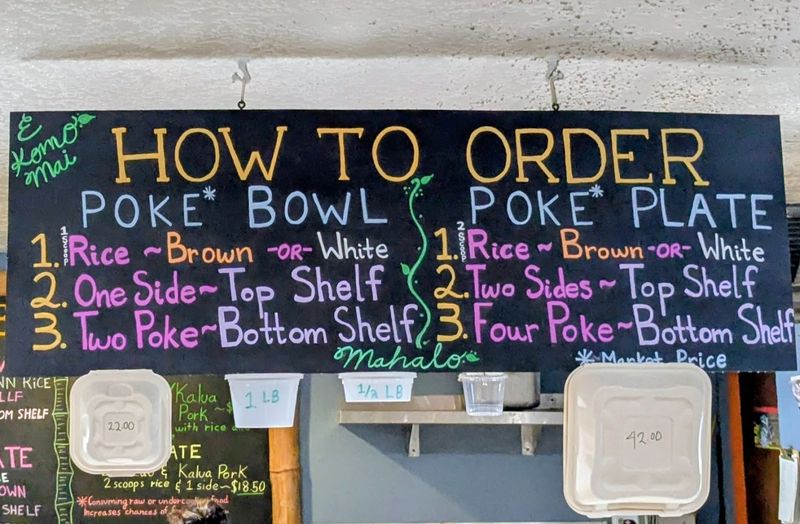 E Komo Mai
HOW TO ORDER
POKE* BOWL
1. 1 SCOOP Rice ~ Brown -OR- White
2. One Side ~ Top Shelf
3. Two Poke ~ Bottom Shelf
POKE* PLATE
1. 2 SCOOP Rice ~ Brown -OR- White
2. Two Sides ~ Top Shelf
3. Four Poke ~ Bottom Shelf
Mahalo
* Market Price
22.00
1 LB
1/2 LB
42.00
WN RICE
LLF
OM SHELF
ATE
OWN
SHELF
/Kalua
Pork ~$
with rice
ATE
& Kalua Pork
2 scoops rice & 1 side ~ $18.50
*Consuming raw or undercooked food
Increases chances of